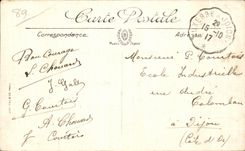 89
Carte Postale
Correspondance
Adresse
15
17
Bon Courage
S. Chouard
J. Galley
G. Courtois
A. Chouard
J. Courtois
Monsieur P. Courtois
Ecole Industrielle
rue André
Colomban
à Dijon
(Côte d'Or)